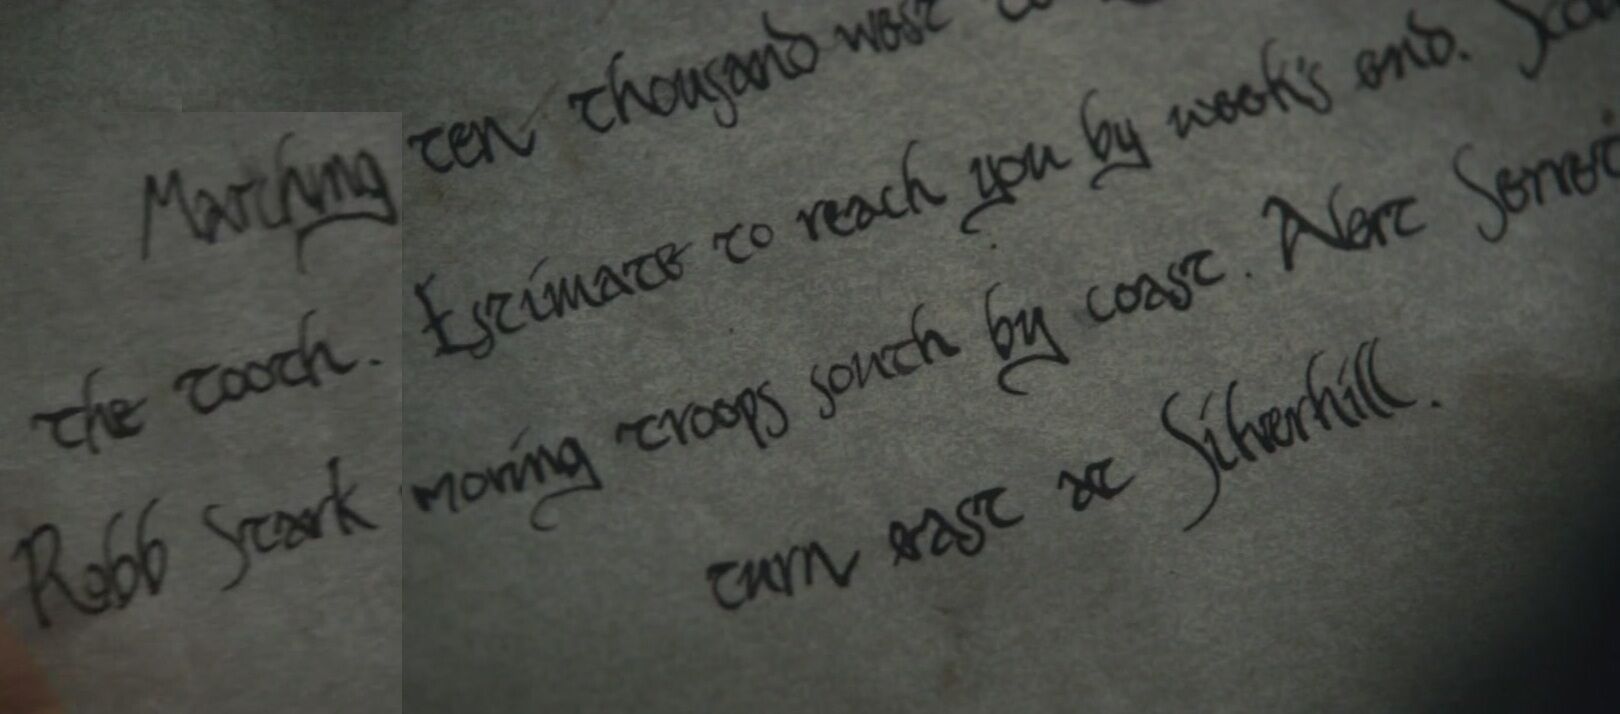 Marching ten thousand west
the tooth. Estimate to reach you by week's end.
Robb Stark moving troops south by coast. Nert
turn east at Silverhill.